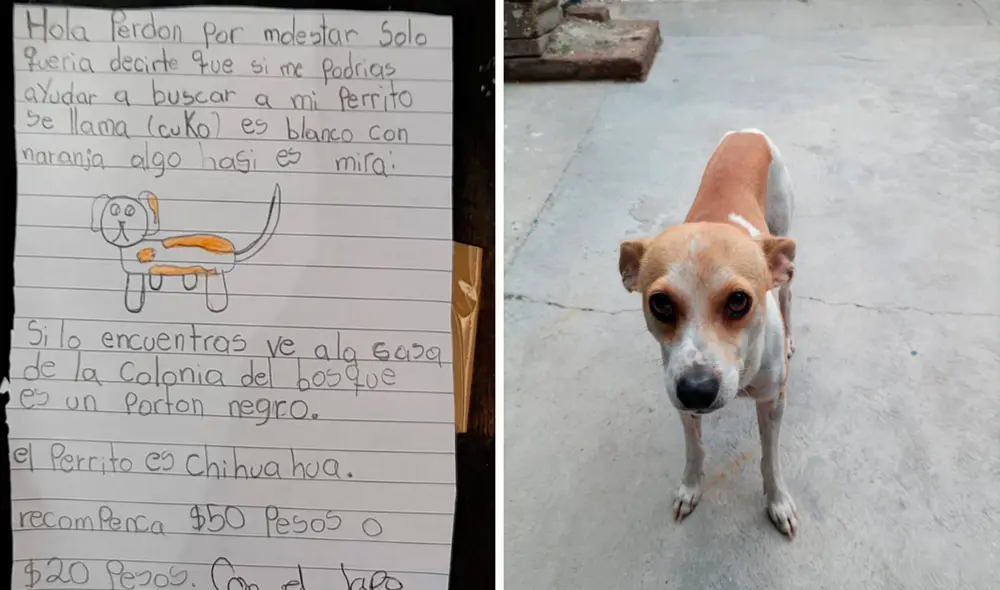 Hola Perdon Por molestar Solo
queria decirte que si me Podrias
ayudar a buscar a mi Perrito
Se llama (cuko) es blanco con
naranja algo hasi es mira:
Si lo encuentras ve alg casa
de la Colonia del bosque
es un Porton negro.
el Perrito es Chihuahua.
recompenca $50 Pesos o
$20 Pesos. Con el